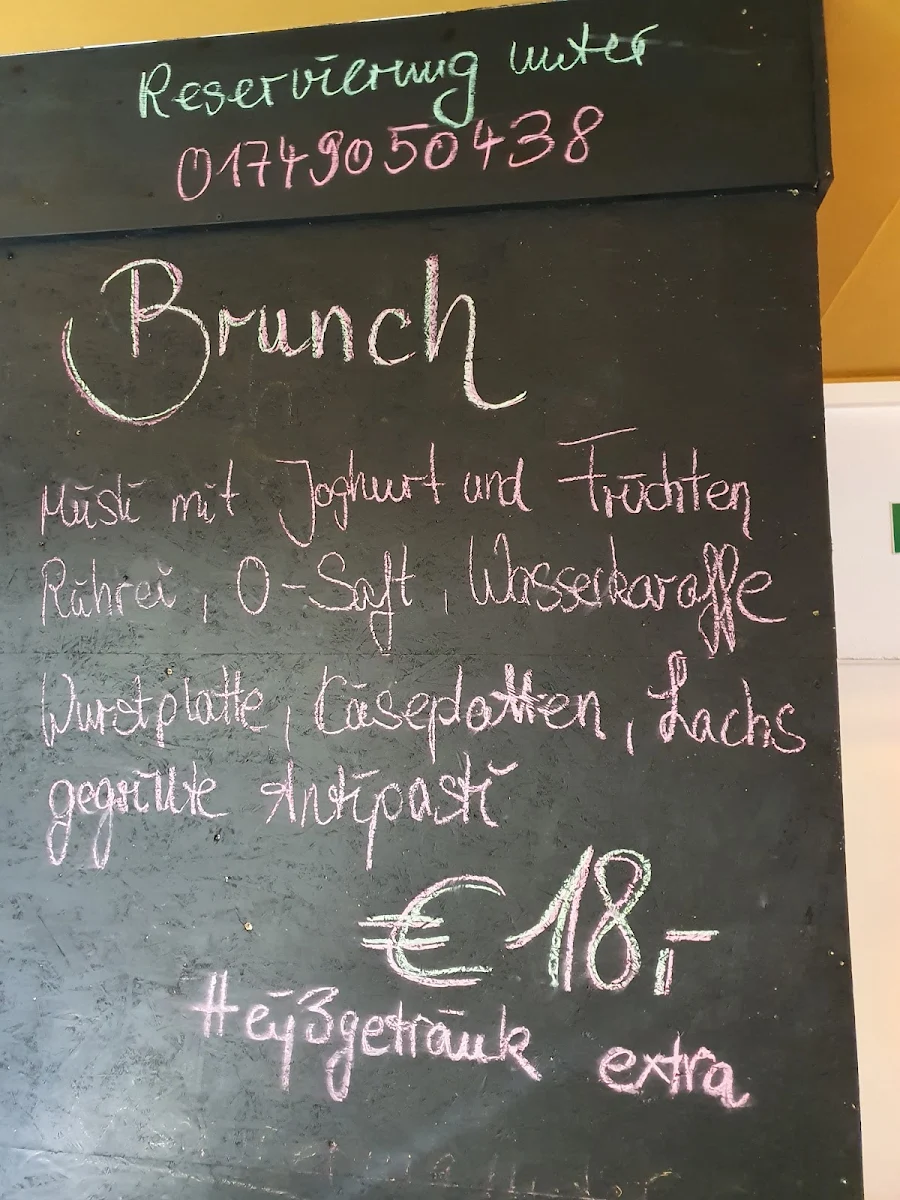 Reservierung unter
01749050438
Brunch
Müsli mit Joghurt und Früchten
Rührei, O-Saft, Wasserkaraffe
Wurstplatte, Cäseplatten, Lachs
gegrillte Antipasti
€ 18,-
Heyßgetränk extra